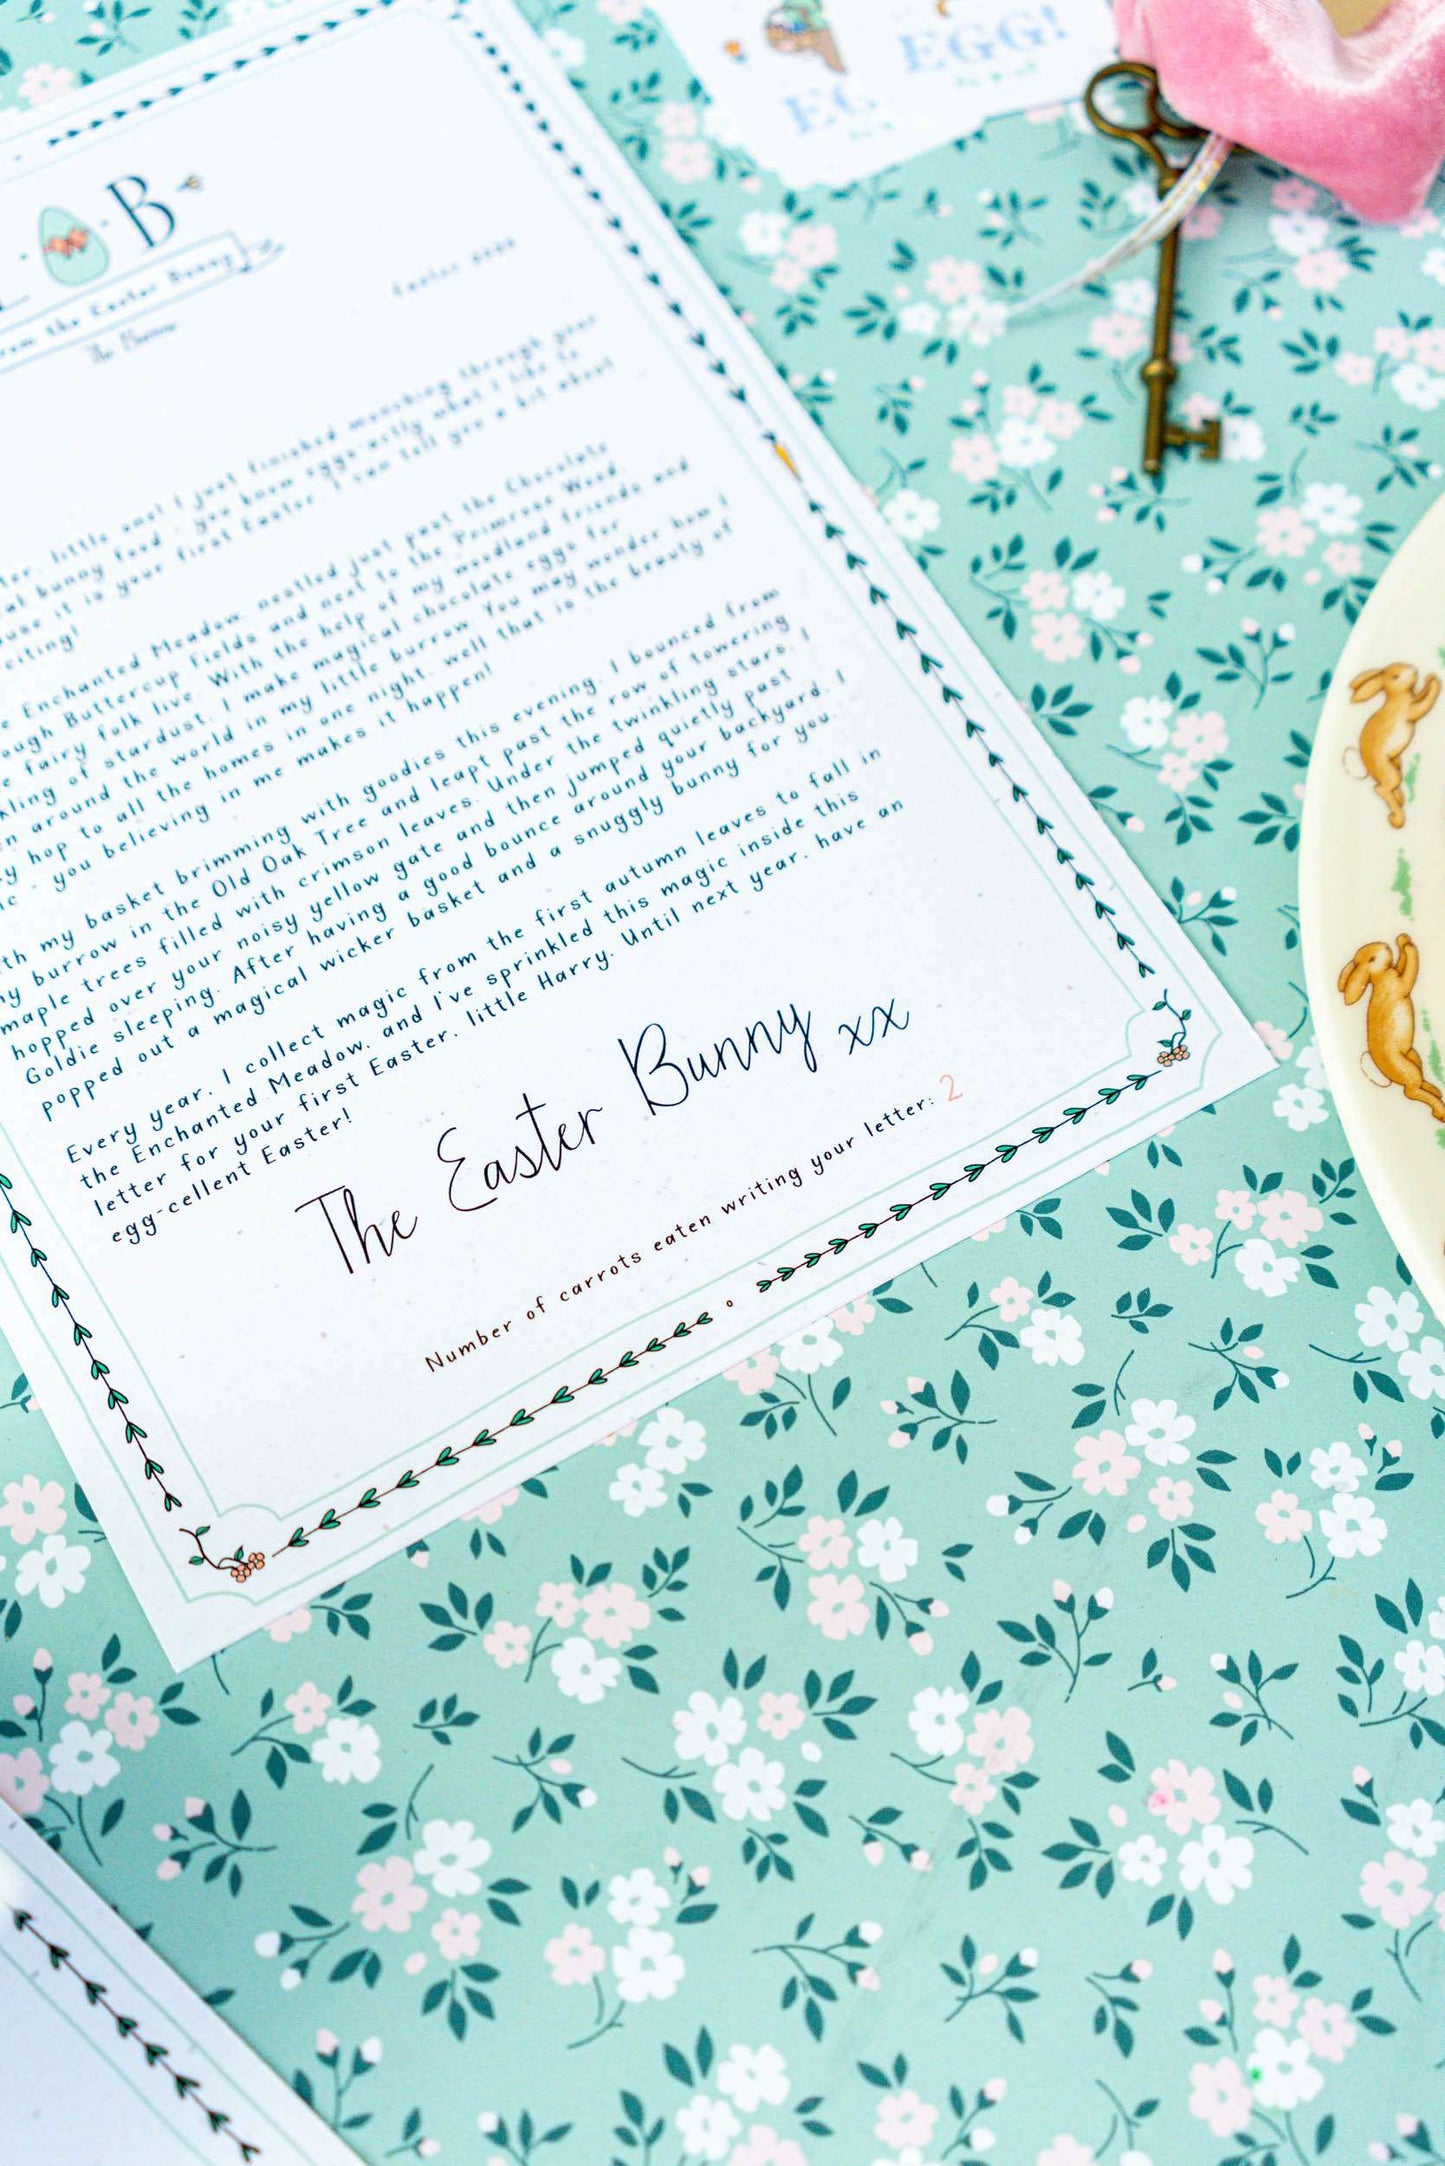 EGG!
EG
B
from the Easter Bunny
The Burrow
Easter
little one! I just finished munching through your
bunny food - you know eggs-actly what I like to
it is your first Easter, I can tell you a bit about
Enchanted Meadow, nestled just past the Chocolate
Buttercup Fields and next to the Primrose Wood
fairy folk live. With the help of my woodland friends and
of stardust, I make magical chocolate eggs for
around the world in my little burrow. You may wonder how I
hop to all the homes in one night, well that is the beauty of
- you believing in me makes it happen!
my basket brimming with goodies this evening, I bounced from
my burrow in the Old Oak Tree and leapt past the row of towering
maple trees filled with crimson leaves. Under the twinkling stars, I
hopped over your noisy yellow gate and then jumped quietly past
Goldie sleeping. After having a good bounce around your backyard, I
popped out a magical wicker basket and a snuggly bunny for you.
Every year, I collect magic from the first autumn leaves to fall in
the Enchanted Meadow, and I've sprinkled this magic inside this
letter for your first Easter, little Harry. Until next year, have an
egg-cellent Easter!
The Easter Bunny xx
Number of carrots eaten writing your letter: 2